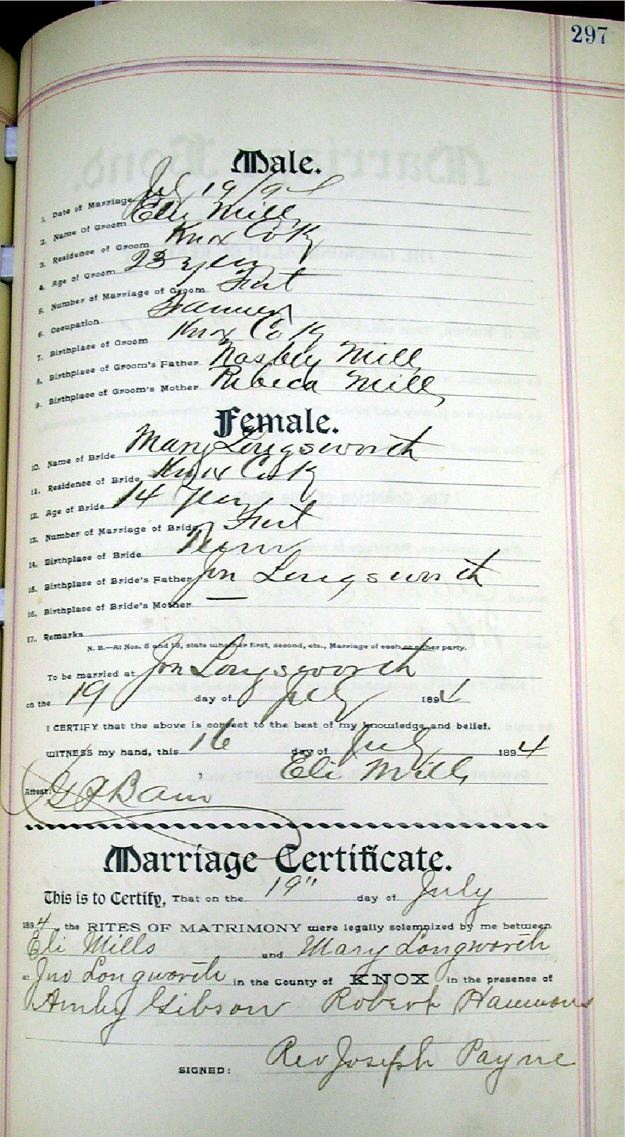 297
Male.
1. Date of Marriage July 19/94
2. Name of Groom Eli Mills
3. Residence of Groom Knox Co Ky
4. Age of Groom 23 years
5. Number of Marriage of Groom First
6. Occupation Farmer
7. Birthplace of Groom Knox Co Ky
8. Birthplace of Groom's Father Mills
9. Birthplace of Groom's Mother Rebeca Mills
Female.
10. Name of Bride Mary Longsworth
11. Residence of Bride Knox Co Ky
12. Age of Bride 14 years
13. Number of Marriage of Bride First
14. Birthplace of Bride Tenn
15. Birthplace of Bride's Father Jno Longsworth
16. Birthplace of Bride's Mother —
17. Remarks
N. B.—At Nos. 5 and 13, state whether first, second, etc., Marriage of each or either party.
To be married at Jno Longsworth
on the 19 day of July 1894
I CERTIFY that the above is correct to the best of my knowledge and belief.
WITNESS my hand, this 16 day of July 1894
Eli Mills
Attest:
Marriage Certificate.
This is to Certify, That on the 19" day of July
1894, the RITES OF MATRIMONY were legally solemnized by me between
Eli Mills and Mary Longworth
at Jno Longworth in the County of KNOX in the presence of
Gibson Robert Hammons
SIGNED: Rev Joseph Payne